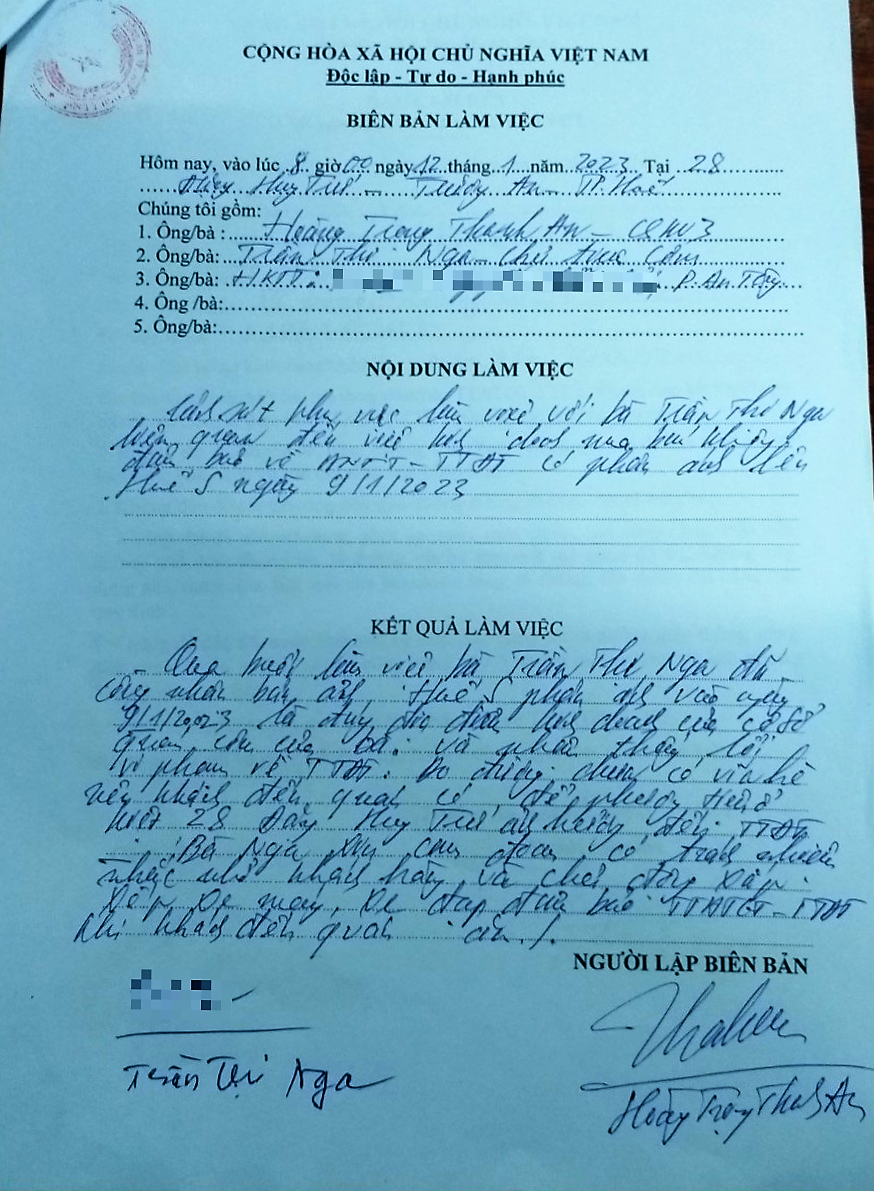 CỘNG HÒA XÃ HỘI CHỦ NGHĨA VIỆT NAM
Độc lập - Tự do - Hạnh phúc
BIÊN BẢN LÀM VIỆC
Hôm nay, vào lúc 8 giờ 00 ngày 12 tháng 1 năm 2023 Tại 28
Đặng Huy Trứ - Trường An - TP Huế
Chúng tôi gồm:
1. Ông/bà : Hoàng Trọng Thanh An -
2. Ông/bà: Trần Thị Nga - Chủ quán cơm
3. Ông/bà: HKTT: P. An Tây
4. Ông /bà:
5. Ông/bà:
NỘI DUNG LÀM VIỆC
làm việc với bà Trần Thị Nga
liên quan đến việc kinh doanh không
đảm bảo về ANTT - TTĐT có phản ánh lên
Huế S ngày 9/1/2023
KẾT QUẢ LÀM VIỆC
Qua buổi làm việc bà Trần Thị Nga đã
công nhận Huế S phản ánh vào ngày
9/1/2023 là đúng địa điểm kinh doanh của cơ sở
quán cơm của bà. Và nhận thấy lỗi
vi phạm về TTĐT. Do
nên khách đến quán có để phương tiện ở
kiệt 28 Đặng Huy Trứ ảnh hưởng đến TTĐT
Bà Nga xin cam đoan có trách nhiệm
nhắc nhở khách hàng và chủ động sắp
xếp xe máy, xe đạp đảm bảo - TTĐT
khi khách đến quán ăn./.
NGƯỜI LẬP BIÊN BẢN
Trần Thị Nga
Hoàng Trọng Thanh An